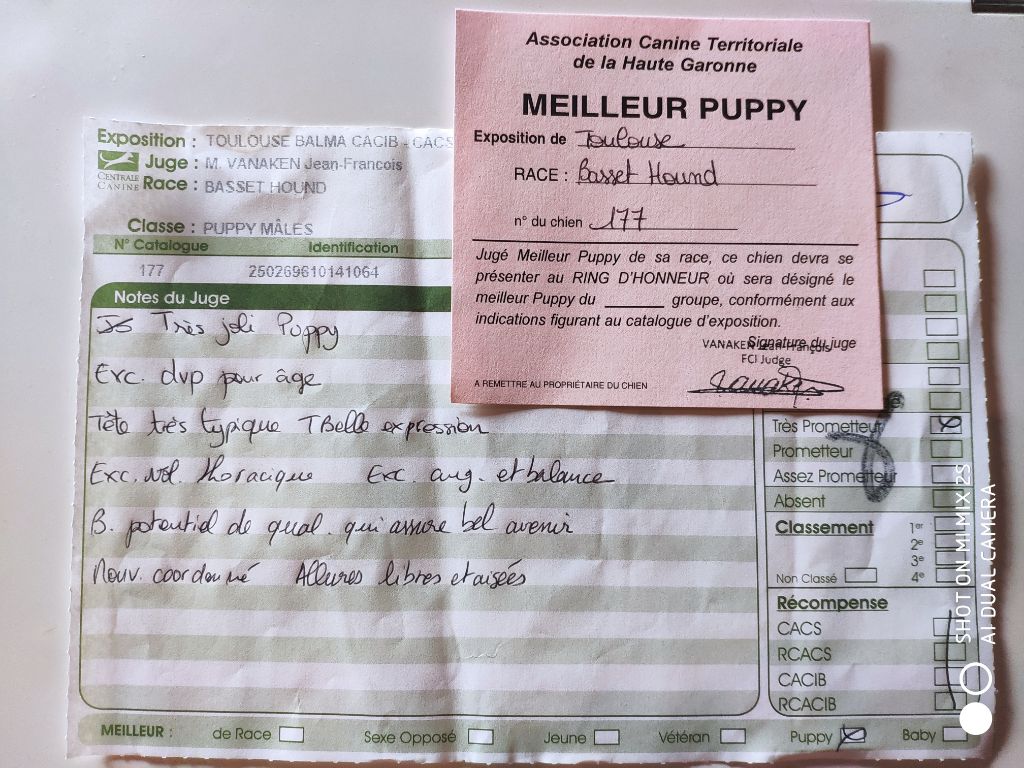 Association Canine Territoriale
de la Haute Garonne
MEILLEUR PUPPY
Exposition de Toulouse
RACE : Basset Hound
n° du chien 177
Jugé Meilleur Puppy de sa race, ce chien devra se
présenter au RING D'HONNEUR où sera désigné le
meilleur Puppy du ______ groupe, conformément aux
indications figurant au catalogue d'exposition.
Signature du juge
VANAKEN Jean-François
FCI Judge
A REMETTRE AU PROPRIÉTAIRE DU CHIEN
Exposition : TOULOUSE BALMA CACIB - CACS
Juge : M. VANAKEN Jean-Francois
CENTRALE CANINE
Race : BASSET HOUND
Classe : PUPPY MÂLES
N° Catalogue Identification
177 250269610141064
Notes du Juge
Très joli Puppy
Exc. dvp pour âge
Tête très typique TBelle expression
Exc. vol. thoracique Exc. ang. et balance
B. potentiel de qual. qui assure bel avenir
Mouv. coordonné Allures libres et aisées
Très Prometteur
Prometteur
Assez Prometteur
Absent
Classement
1er
2e
3e
4e
Non Classé
Récompense
CACS
RCACS
CACIB
RCACIB
MEILLEUR : de Race Sexe Opposé Jeune Vétéran Puppy Baby
SHOT ON MI MIX 2S
AI DUAL CAMERA